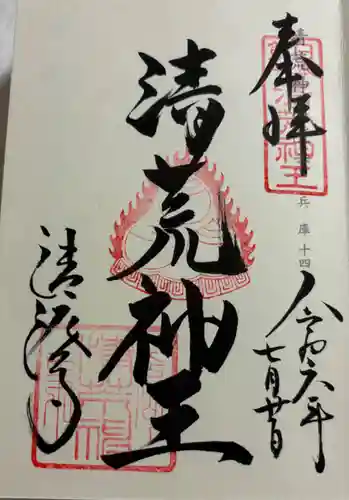 奉拝
兵庫十四
令和六年
七月廿日
清荒神王
清澄寺